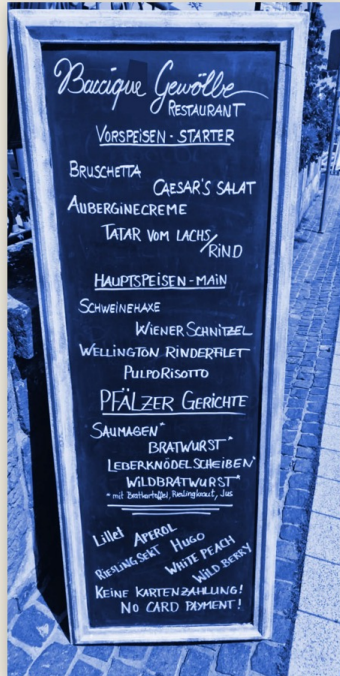 Baccique Gewölbe
RESTAURANT
VORSPEISEN - STARTER
BRUSCHETTA
CAESAR'S SALAT
AUBERGINECREME
TATAR VOM LACHS/RIND
HAUPTSPEISEN - MAIN
SCHWEINEHAXE
WIENER SCHNITZEL
WELLINGTON RINDERFILET
PULPO RISOTTO
PFÄLZER GERICHTE
SAUMAGEN*
BRATWURST*
LEBERKNÖDEL SCHEIBEN*
WILDBRATWURST*
* mit Bratkartoffel, Rieslingkraut, Jus
Lillet APEROL
RIESLING SEKT HUGO
WHITE PEACH
WILD BERRY
KEINE KARTENZAHLUNG!
NO CARD PAYMENT!